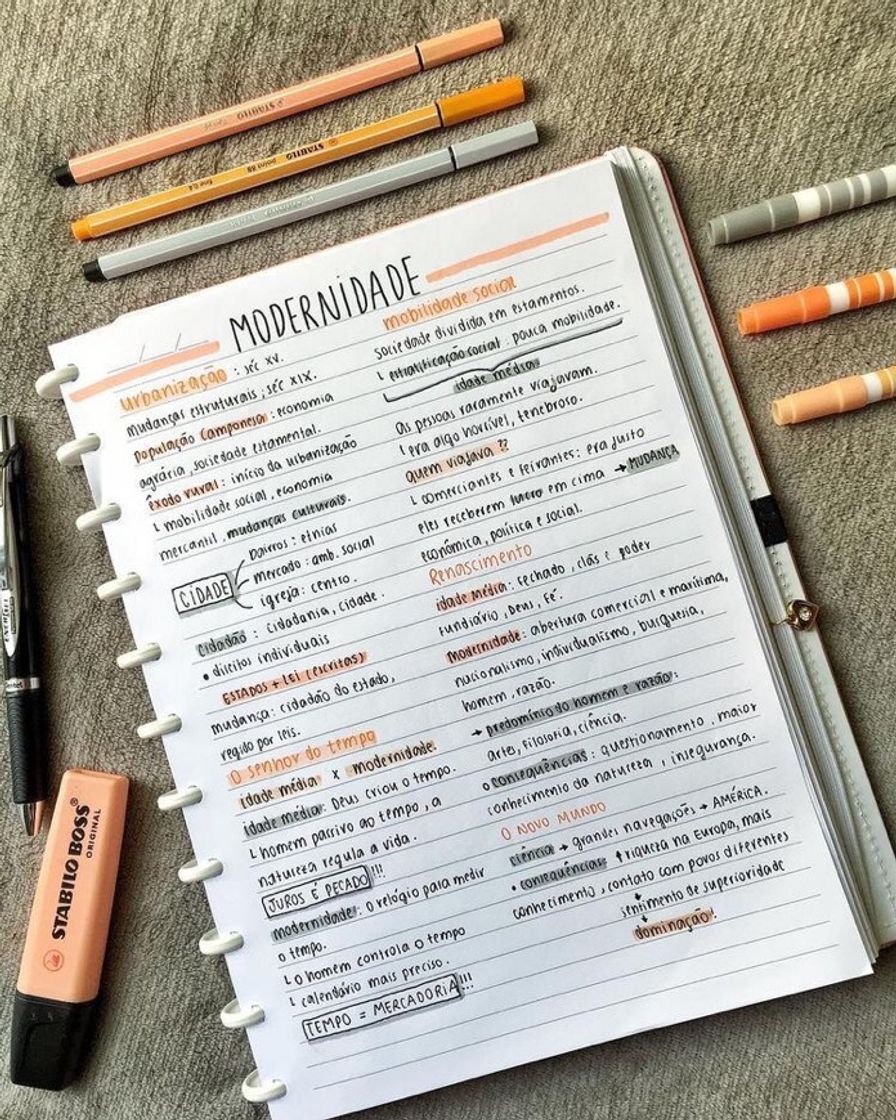 STABILO
STABILO point 88 fine 0,4
MODERNIDADE
urbanização : séc XV.
mudanças estruturais ; séc XIX.
População Camponesa : economia
agrária , sociedade estamental.
êxodo rural : início da urbanização
└ mobilidade social , economia
mercantil , mudanças culturais.
CIDADE
bairros : etnias
mercado : amb. social
igreja : centro.
Cidadão : cidadania , cidade .
• direitos individuais
ESTADOS + LEI (escritas)
mudança : cidadão do estado,
regido por leis.
O senhor do tempo
idade média x modernidade.
idade média : Deus criou o tempo.
└ homem passivo ao tempo , a
natureza regula a vida .
JUROS É PECADO !!!
modernidade : o relógio para medir
o tempo.
└ o homem controla o tempo
└ calendário mais preciso .
TEMPO = MERCADORIA !!!
mobilidade social
sociedade dividida em estamentos.
└ estratificação social : pouca mobilidade.
idade média
As pessoas raramente viajavam.
└ era algo horrível, tenebroso.
quem viajava ??
└ comerciantes e feirantes : era justo
eles receberem lucro em cima → MUDANÇA
econômica, política e social.
Renascimento
idade média : fechado , clãs e poder
fundiário , Deus , Fé .
Modernidade : abertura comercial e marítima,
nacionalismo, individualismo , burguesia,
homem , razão.
→ predomínio do homem e razão :
arte, filosofia, ciência.
o consequências : questionamento , maior
conhecimento da natureza , insegurança.
O NOVO MUNDO
ciência → grandes navegações → AMÉRICA.
• consequências ↑ riqueza na Europa, mais
conhecimento , contato com povos diferentes
↓
sentimento de superioridade
↓
dominação !
STABILO BOSS®
ORIGINAL